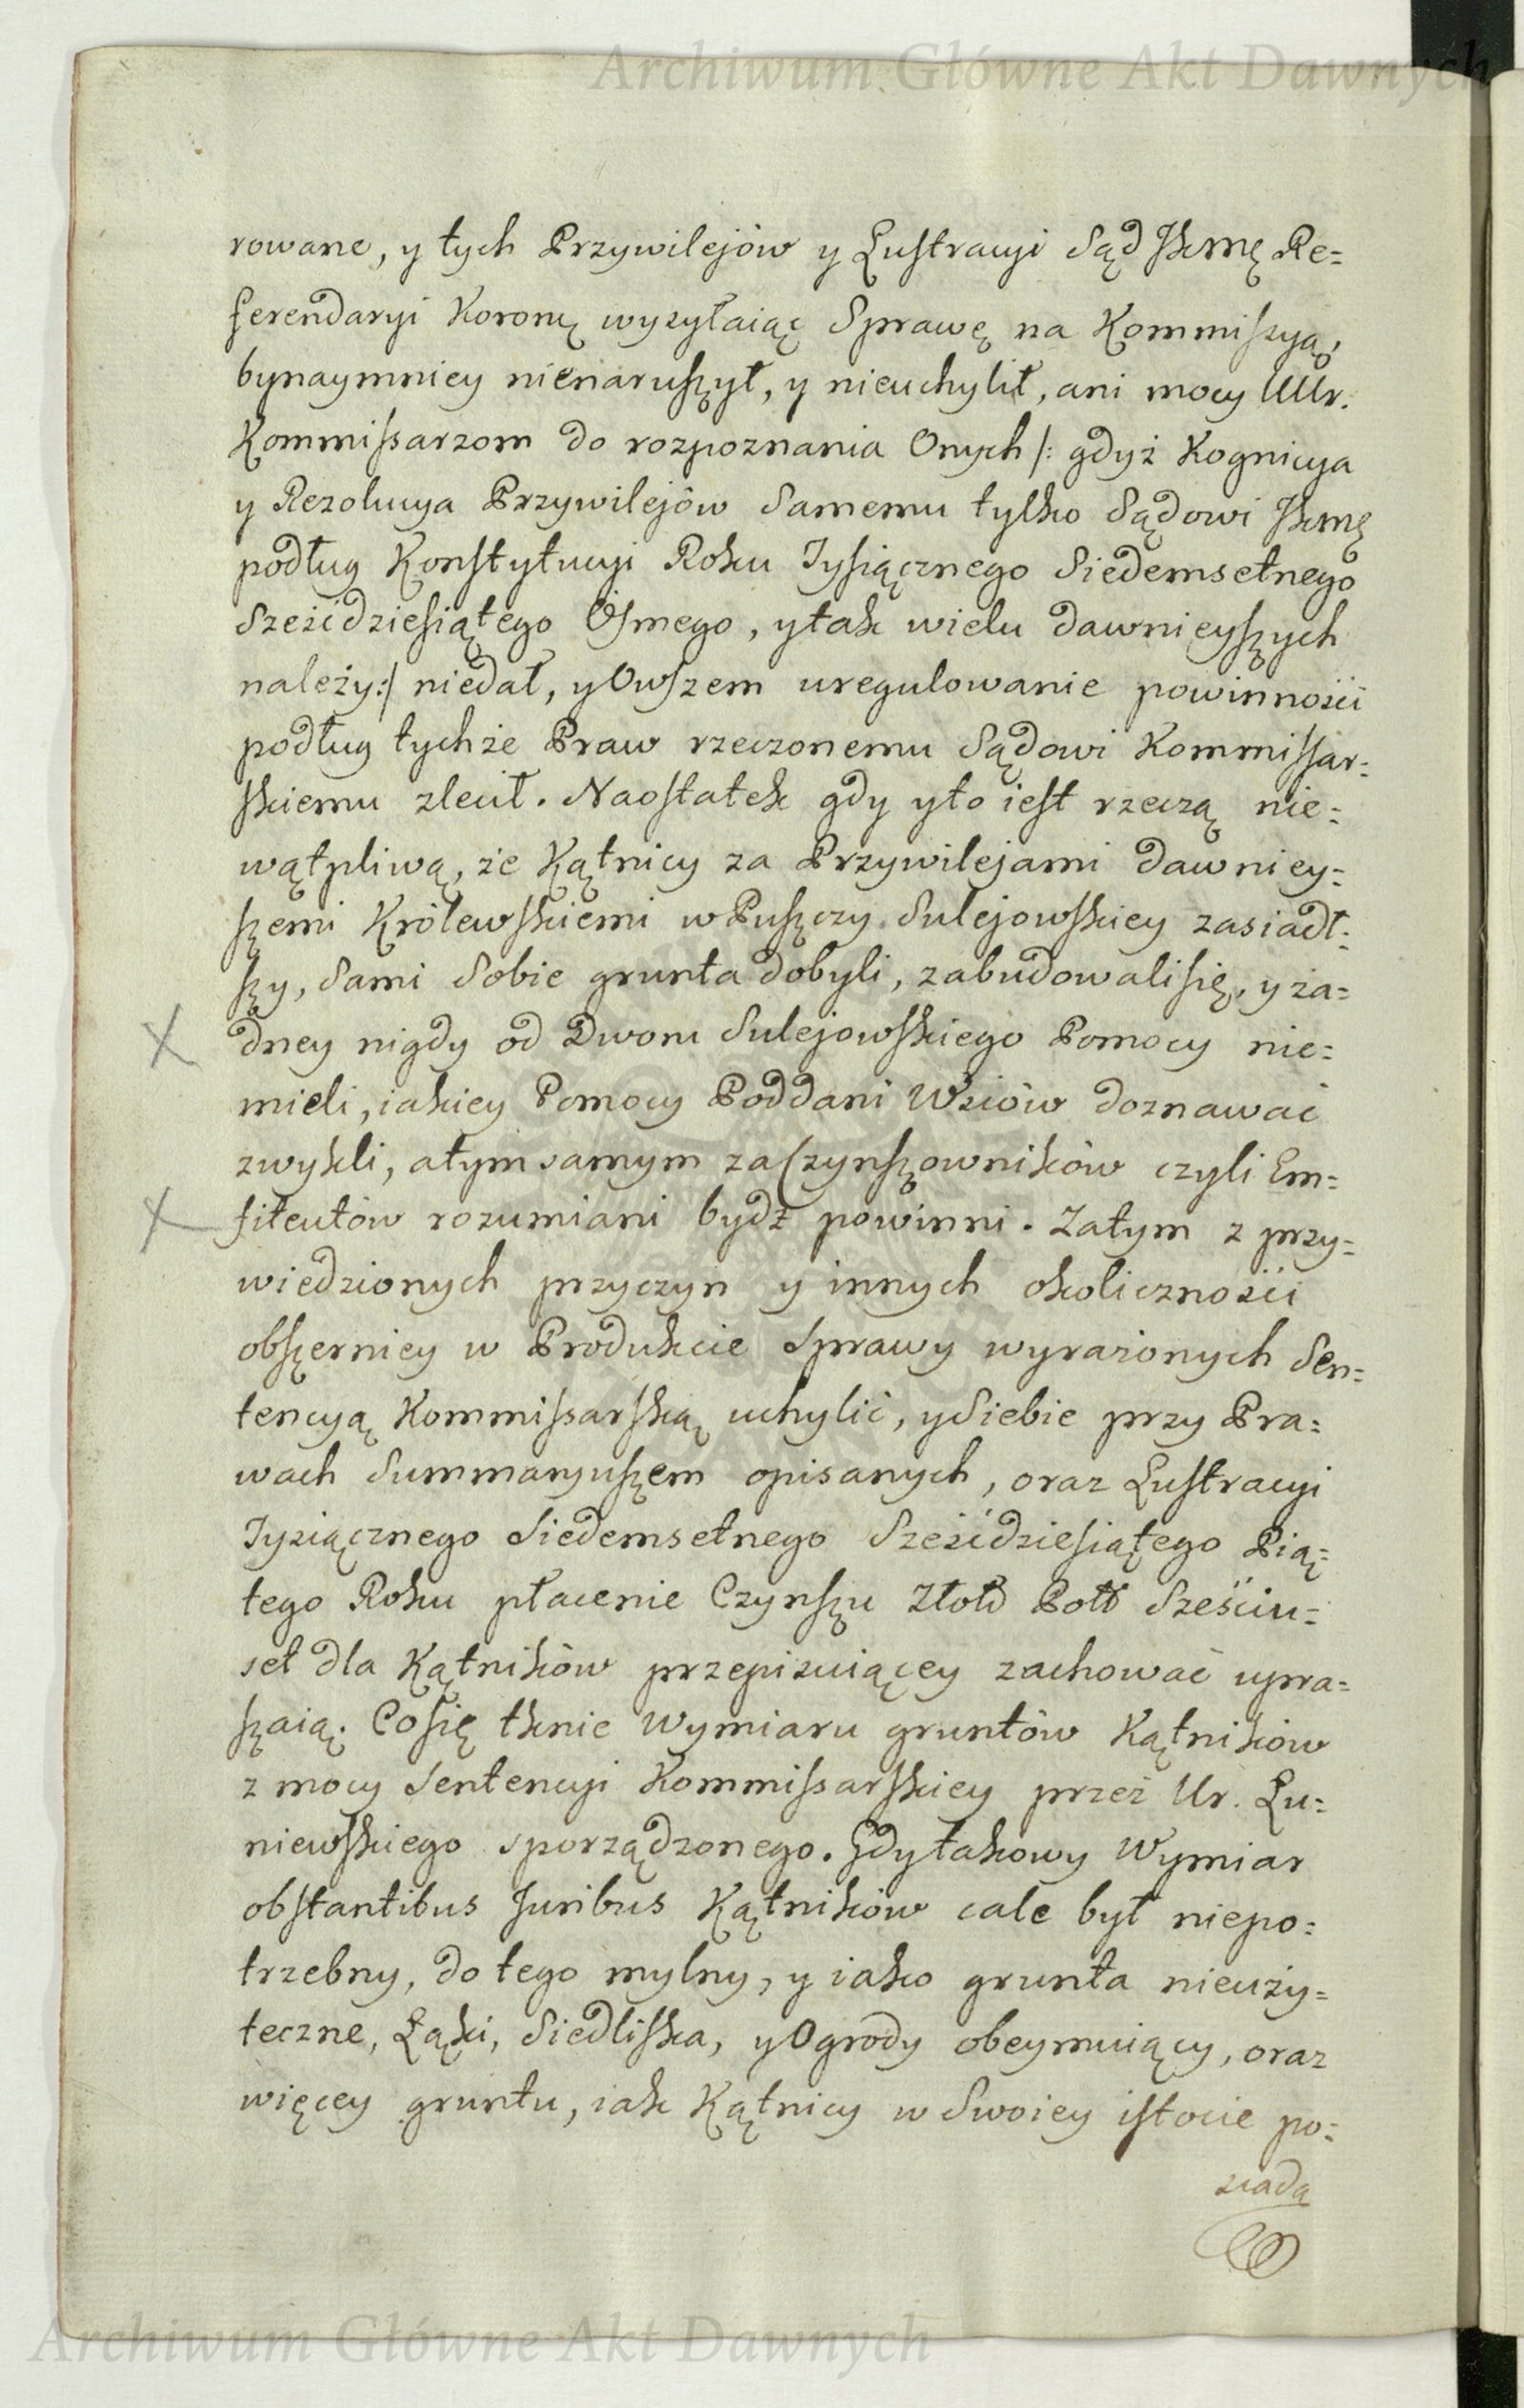 Archiwum Główne Akt Dawnych
rowane, y tych Przywilejów y Lustracyi Sąd JKMę Re=
ferendaryi Koronę wyzyłaiąc Sprawę na Kommiszyą,
bynaymniey nienaruszył, y nieuchylił, ani mocy UUr.
Kommissarzom do rozpoznania Onych /: gdyż Kognicya
y Rezolucya Przywilejów Samemu tylko Sądowi JKmę
podług Konstytucyi Roku Tysiącznego Siedemsetnego
Sześćdziesiątego Osmego, y tak wielu dawnieyszych
należy:/ niedał, y Owszem uregulowanie powinności
podług tychże Praw rzeczonemu Sądowi Kommissar=
skiemu zlecił. Naostatek gdy y to iest rzeczą nie=
wątpliwą, że Kątnicy za Przywilejami dawniey=
szemi Królewskiemi w Puszczy Sulejowskiey zasiadł=
szy, Sami Sobie grunta dobyli, zabudowali się, y ża=
dney nigdy od Dworu Sulejowskiego Pomocy nie=
mieli, iakiey Pomocy Poddani Wsiów doznawać
zwykli, a tym samym za Czynszowników czyli Em=
fiteutów rozumiani bydź powinni. Zatym z przy=
wiedzionych przyczyn y innych okoliczności
obszerniey w Produkcie Sprawy wyrażonych Sen=
tencyą Kommissarską uchylić, y Siebie przy Pra=
wach Summaryuszem opisanych, oraz Lustracyi
Tysiącznego Siedemsetnego Sześćdziesiątego Pią=
tego Roku płacenie Czynszu Złotd Poll Sześciu=
set dla Kątników przepisuiącey zachować upra=
szaią. Co się tknie Wymiaru gruntów Kątników
z mocy Sentencyi Kommissarskiey przez Ur. Łu=
niewskiego sporządzonego. Gdy takowy Wymiar
obstantibus Juribus Kątników cale był niepo=
trzebny, do tego mylny, y iako grunta nieuży=
teczne, Łąki, Siedliska, y Ogrody obeymuiący, oraz
więcey gruntu, iak Kątnicy w Swoiey istocie po=
siada
Archiwum Główne Akt Dawnych